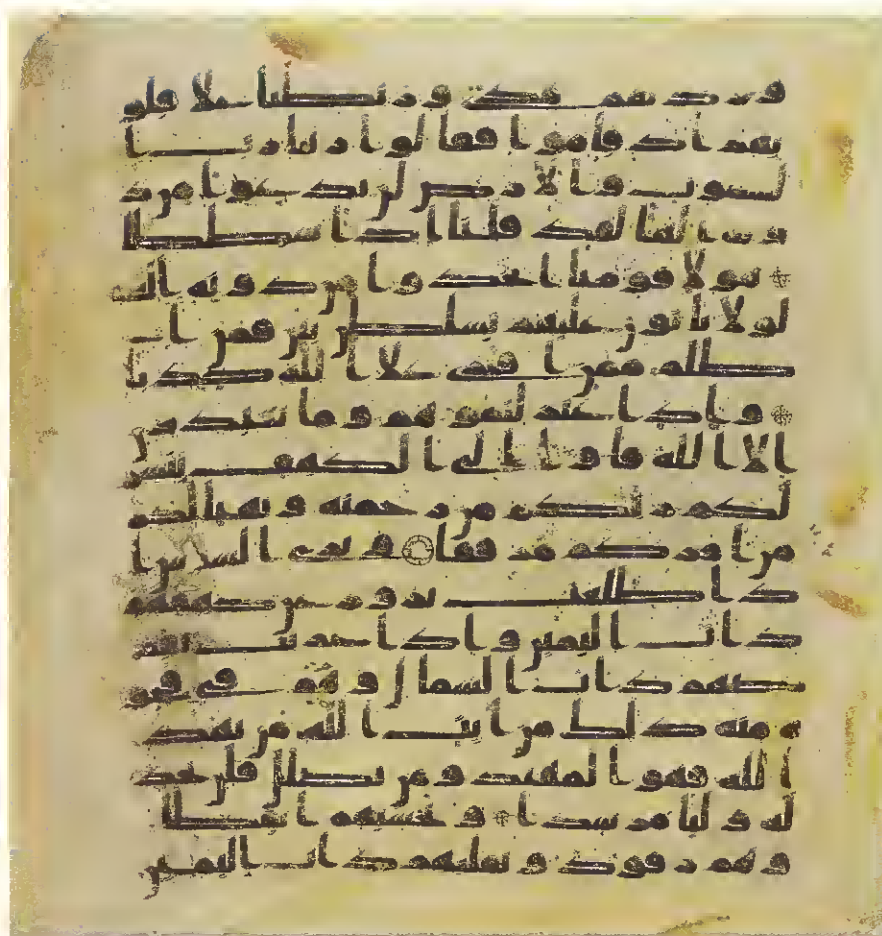 وزدنهم هدى وربطنا على قلو
بهم اذ قاموا فقالوا ربنا رب ا
لسموت والارض لن ندعوا من د
ونه الها لقد قلنا اذا شططا
هولا قومنا اتخذوا من دونه الهة
لولا ياتون عليهم بسلطن بين فمن ا
ظلم ممن افترى على الله كذبا
واذ اعتزلتموهم وما يعبدون
الا الله فاوا الى الكهف ينشر
لكم ربكم من رحمته ويهيى لكم
من امركم مرفقا وترى الشمس ا
ذا طلعت تزور عن كهفهم
ذات اليمين واذا غربت تقر
ضهم ذات الشمال وهم فى فجو
ة منه ذلك من ايت الله من يهد
الله فهو المهتد ومن يضلل فلن تجد
له وليا مرشدا وتحسبهم ايقاظا
وهم رقود ونقلبهم ذات اليمين